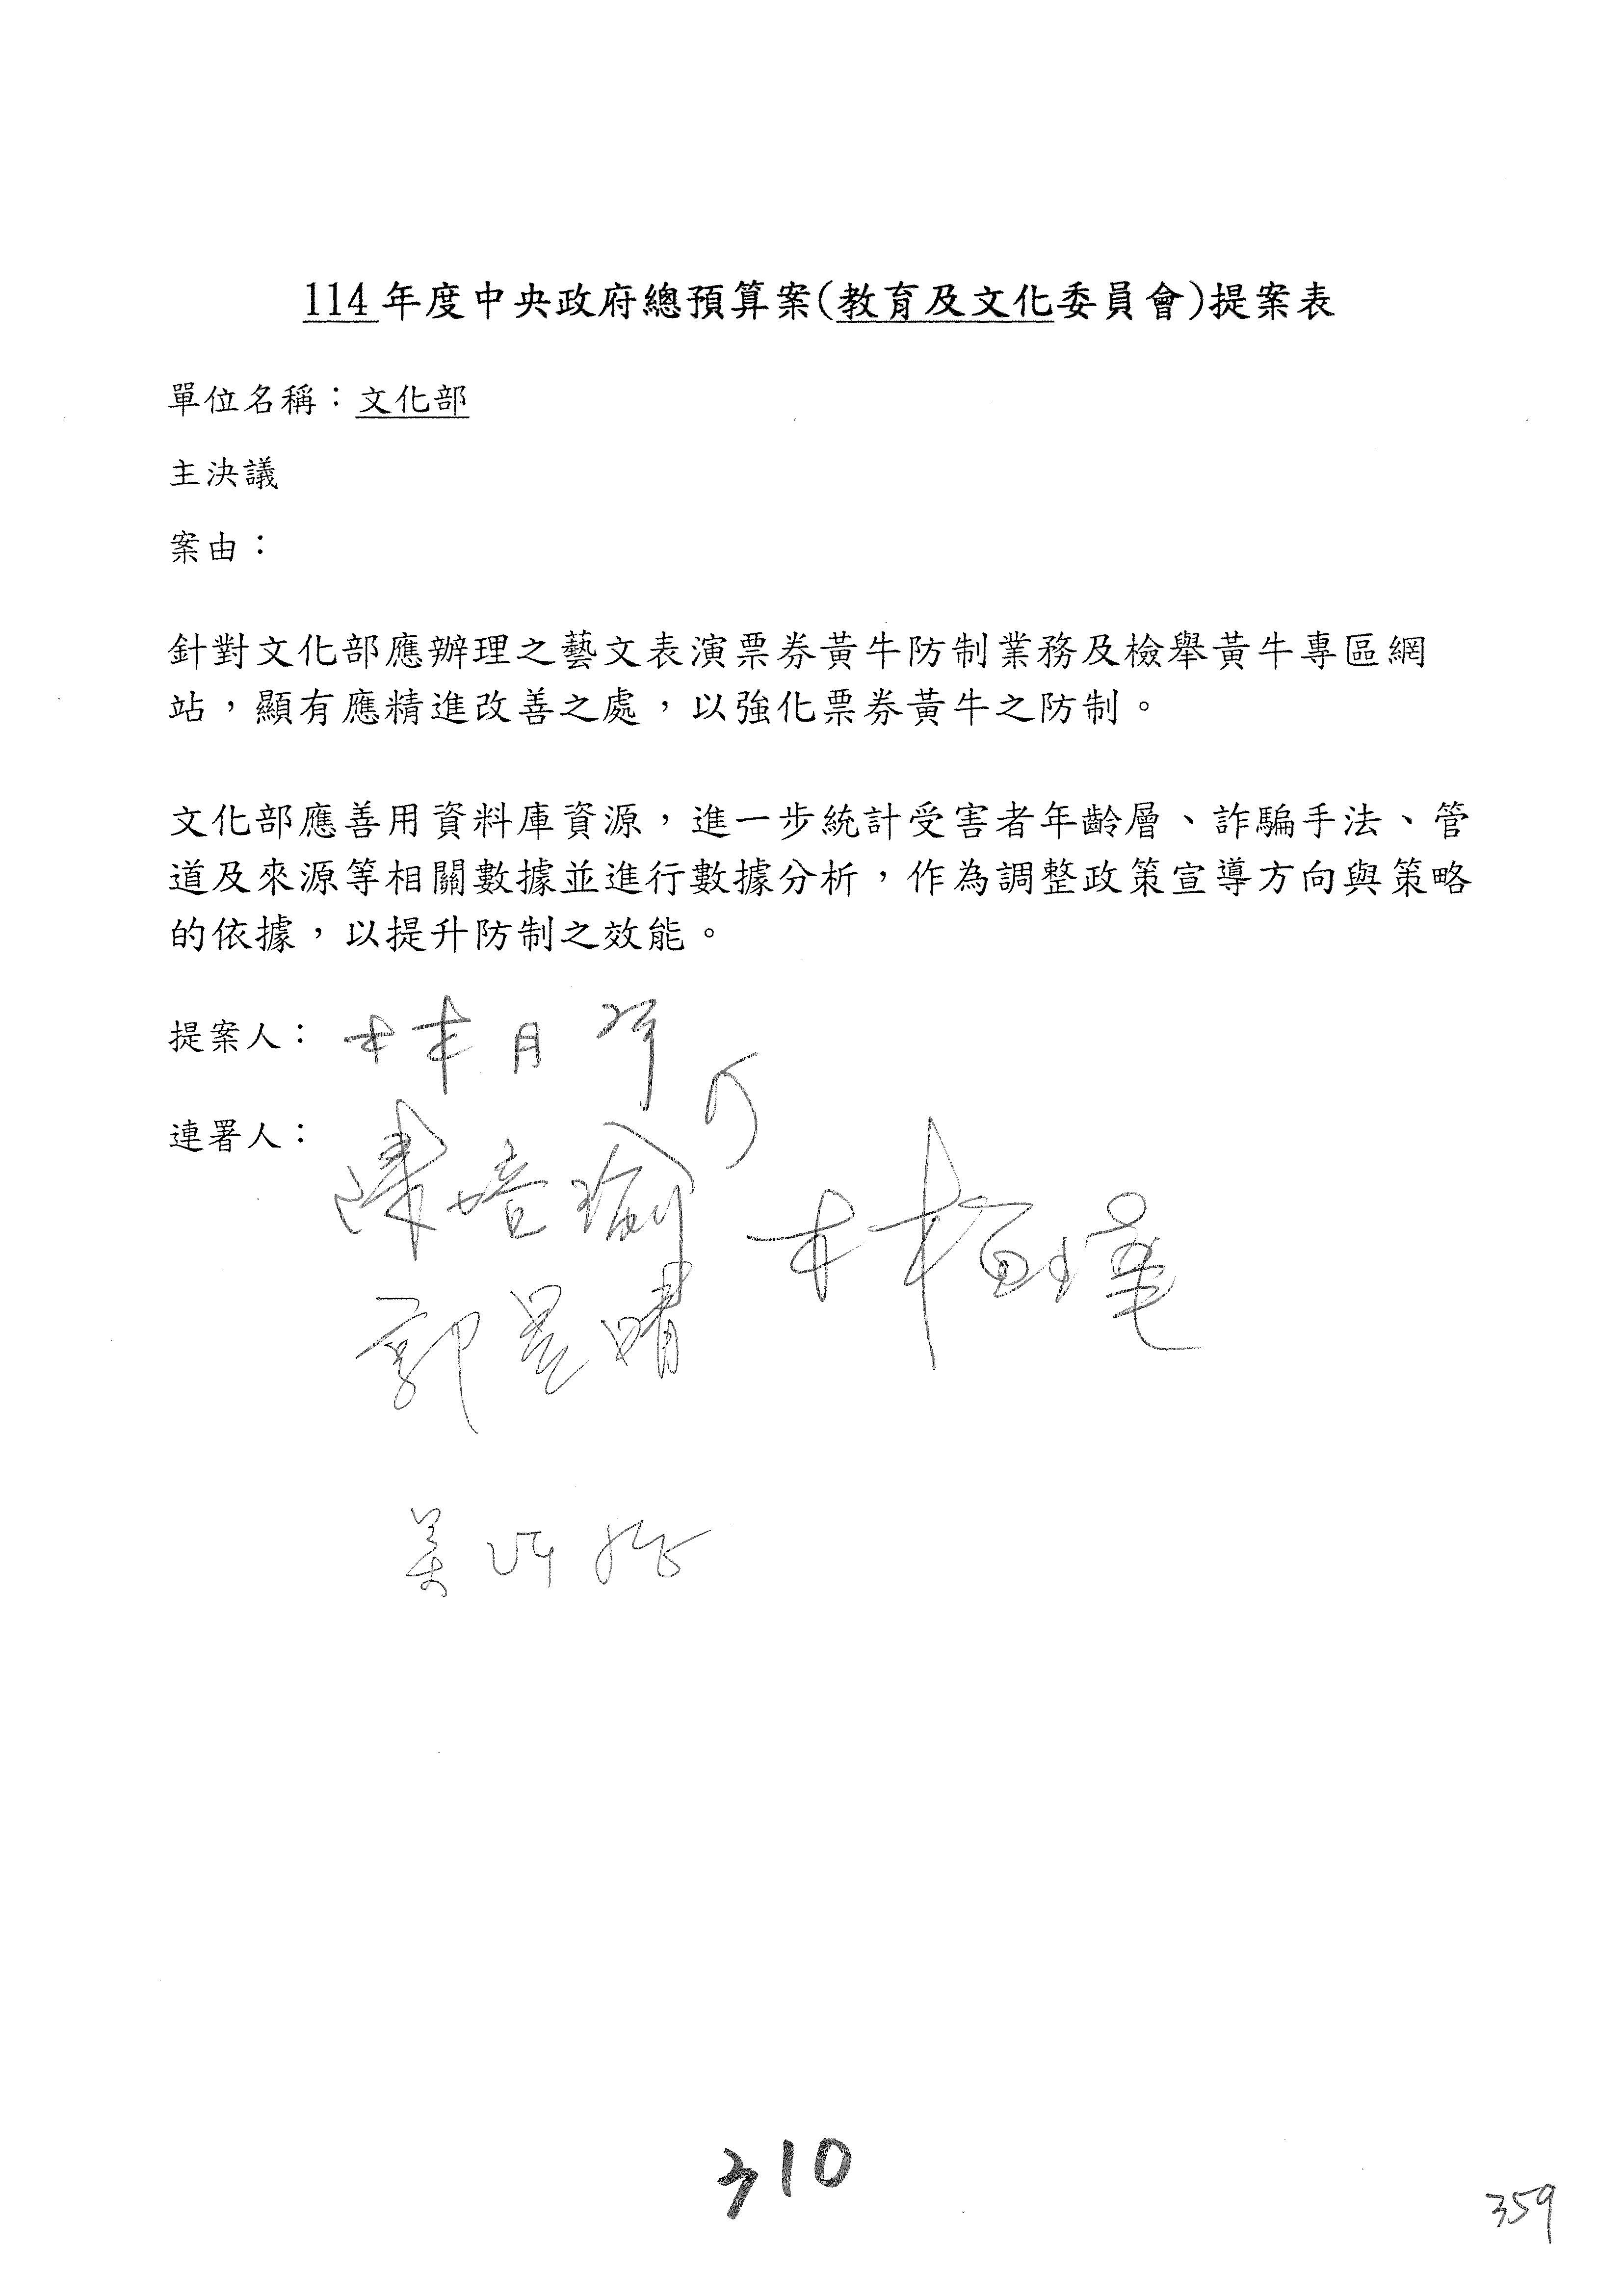 114年度中央政府總預算案(教育及文化委員會)提案表
單位名稱：文化部
主決議
案由：
針對文化部應辦理之藝文表演票券黃牛防制業務及檢舉黃牛專區網
站，顯有應精進改善之處，以強化票券黃牛之防制。
文化部應善用資料庫資源，進一步統計受害者年齡層、詐騙手法、管
道及來源等相關數據並進行數據分析，作為調整政策宣導方向與策略
的依據，以提升防制之效能。
提案人：林月琴
連署人：
陳培瑜
郭昱晴
吳沛憶
310
359